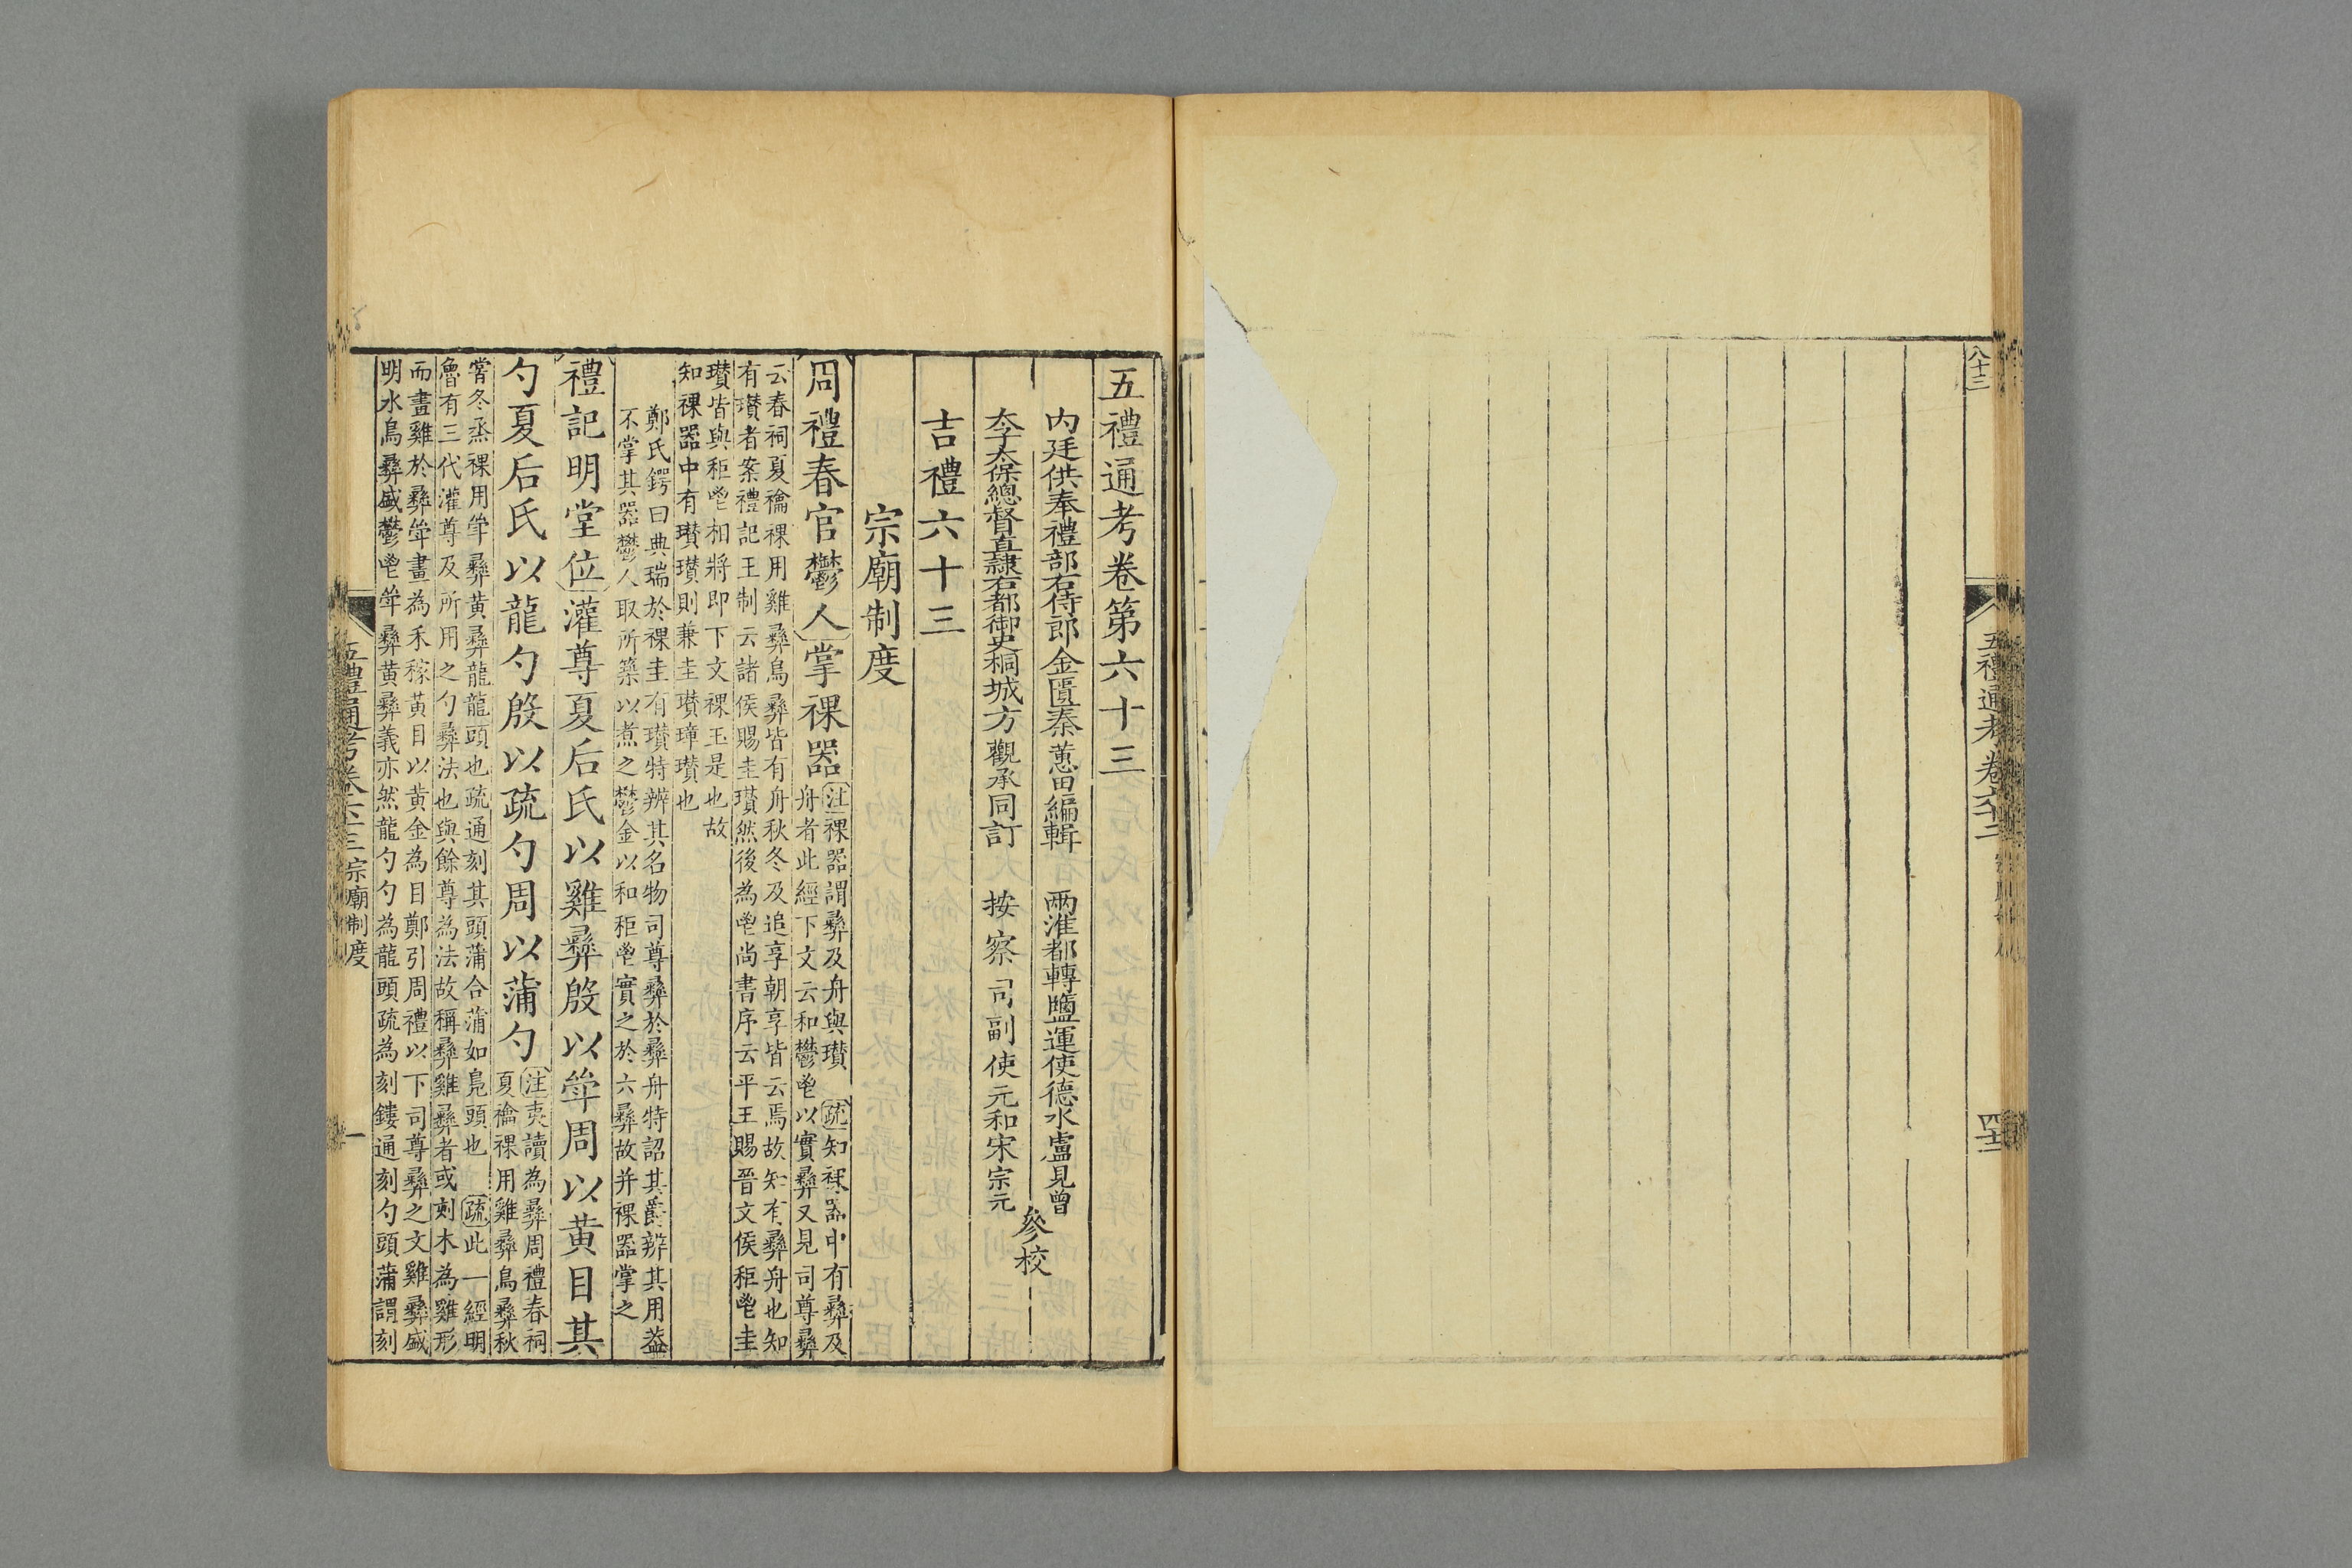 八十三
五禮通考卷六十二
五禮通考卷第六十三
内廷供奉禮部右侍郎金匱秦蕙田編輯 兩淮都轉鹽運使德水盧見曾
太子太保總督直隸右都御史桐城方觀承同訂 按察司副使元和宋宗元
參校
吉禮六十三
宗廟制度
周禮春官鬱人掌祼器
注祼器謂彝及舟與瓚 疏知祼器中有彝及
舟者此經下文云和鬱鬯以實彝又見司尊彝
云春祠夏禴祼用雞彝鳥彝皆有舟秋冬及追享朝享皆云焉故知有彝舟也知
有瓚者案禮記王制云諸侯賜圭瓚然後為鬯尚書序云平王賜晉文侯秬鬯圭
瓚皆與秬鬯相將即下文祼玉是也故
知祼器中有瓚瓚則兼圭瓚璋瓚也
鄭氏鍔曰典瑞於祼圭有瓚特辨其名物司尊彝於彝舟特詔其爵辨其用葢
不掌其器鬱人取所築以煮之鬱金以和秬鬯實之於六彝故并祼器掌之
禮記明堂位灌尊夏后氏以雞彝殷以斝周以黃目其
勺夏后氏以龍勺殷以疏勺周以蒲勺
注夷讀為彝周禮春祠
夏禴祼用雞彝鳥彝秋
嘗冬烝祼用斝彝黃彝龍龍頭也疏通刻其頭蒲合蒲如鳧頭也 疏此一經明
魯有三代灌尊及所用之勺彝法也與餘尊為法故稱彝雞彝者或刻木為雞形
而畫雞於彝斝畫為禾稼黃目以黃金為目鄭引周禮以下司尊彝之文雞彝盛
明水鳥彝盛鬱鬯斝彝黃彝義亦然龍勺勺為龍頭疏為刻鏤通刻勺頭蒲謂刻
五禮通考卷六十三 宗廟制度
一